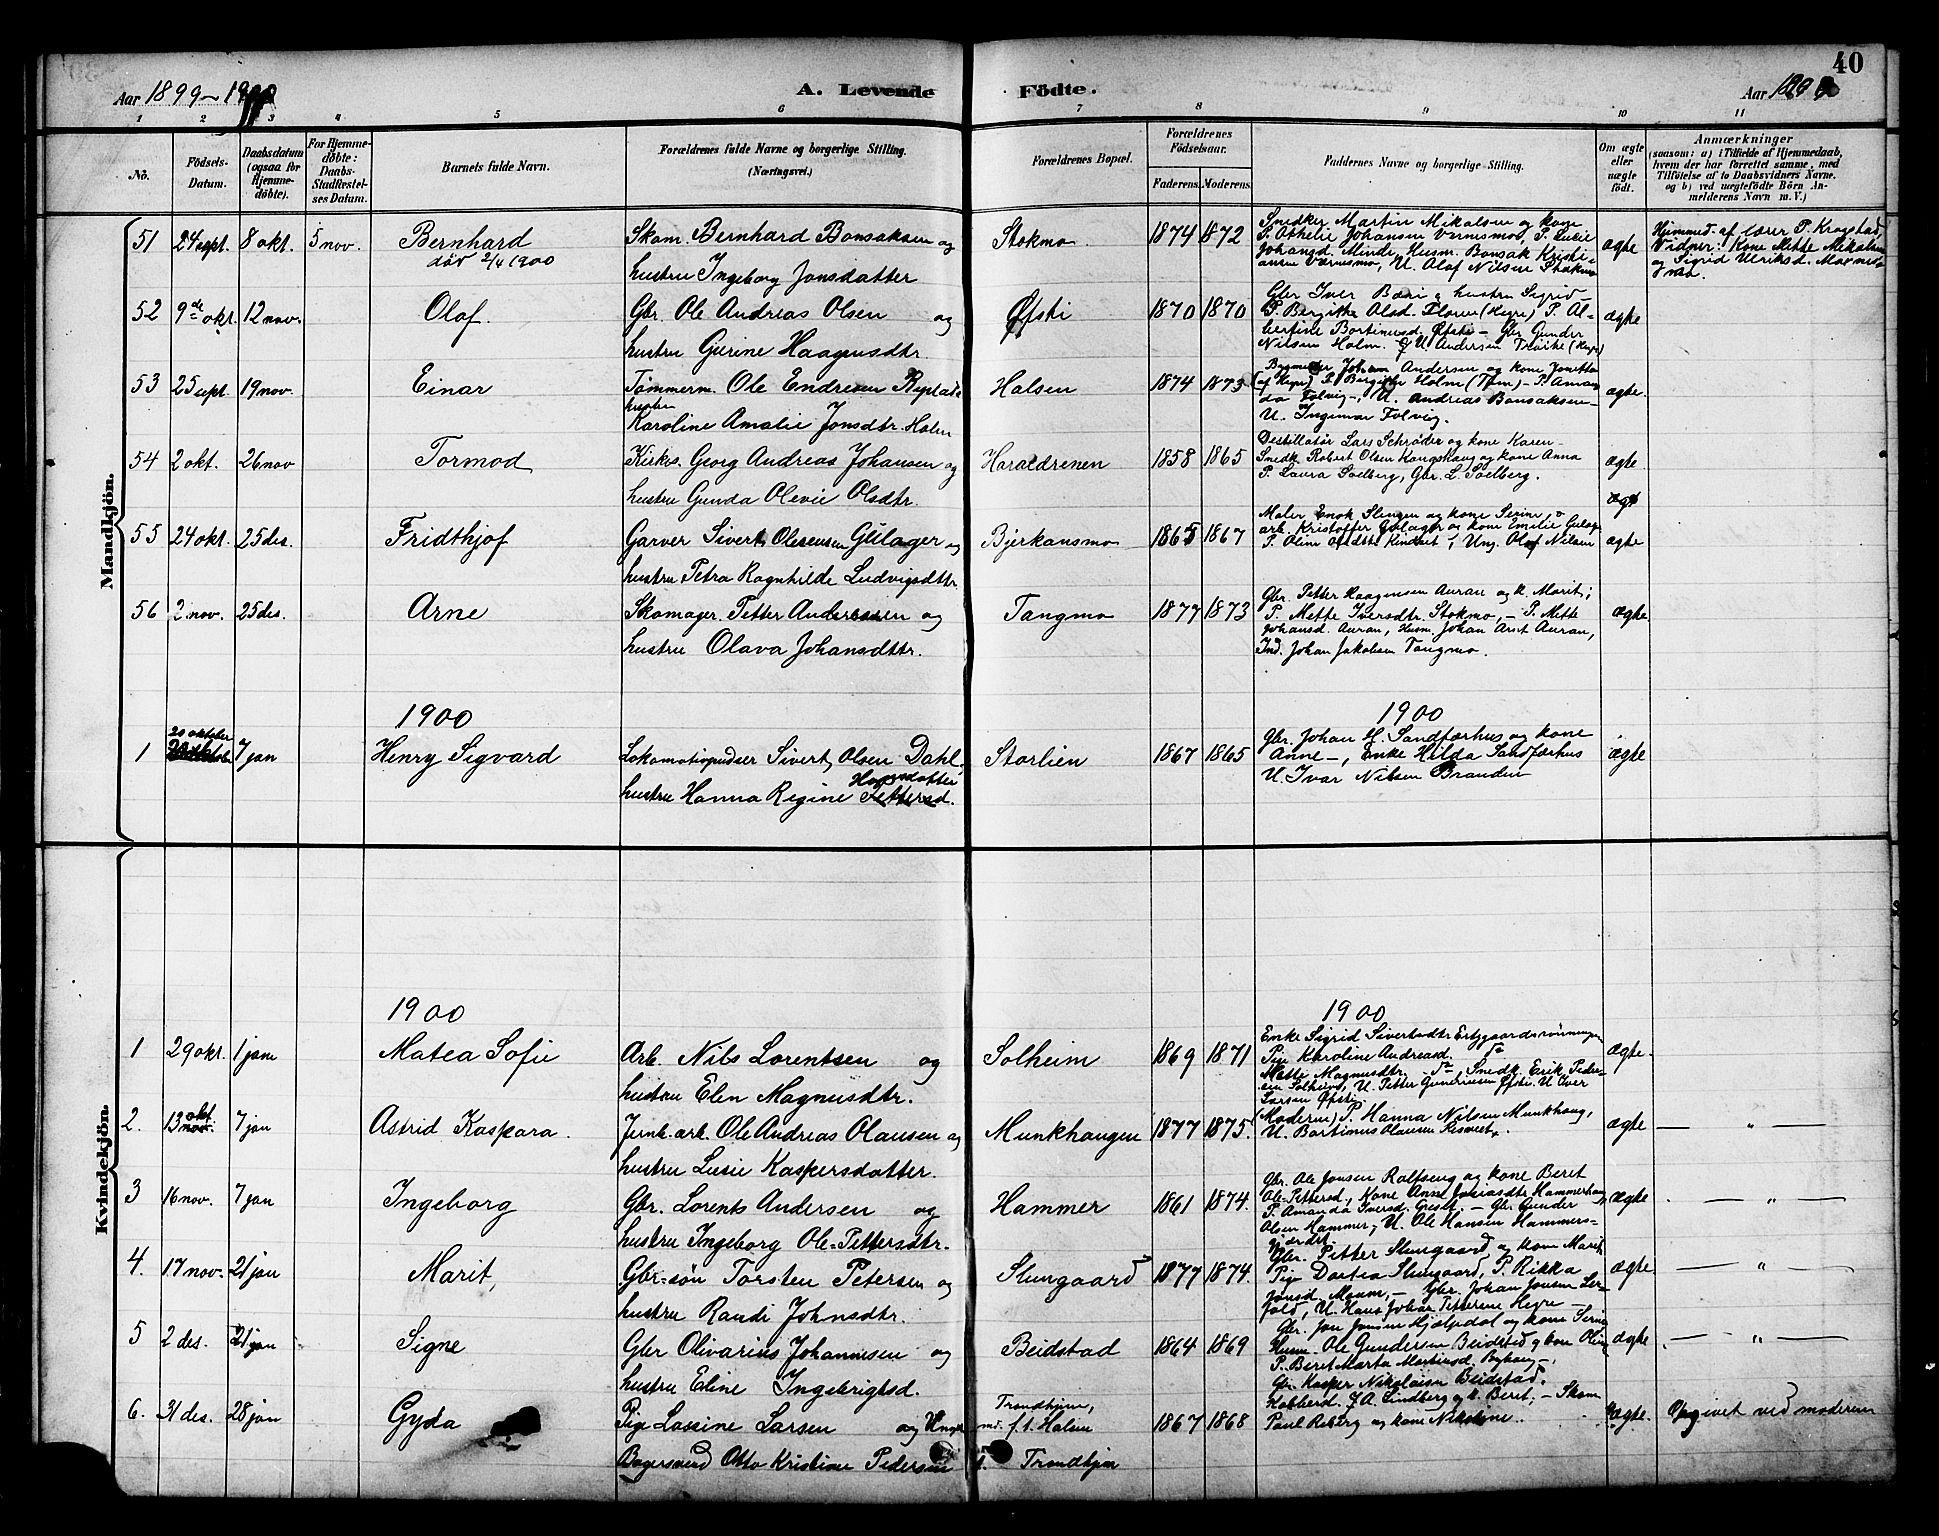 40
Aar 1899-1900
A. Levende Födte.
Aar
1 2 3 4 5 6 7 8 9 10 11
No.
Födsels-Datum.
Daabsdatum (ogsaa for Hjemme-döbte).
For Hjemme-döbte: Daabs-Stadfæstel-ses Datum.
Barnets fulde Navn.
Forældrenes fulde Navne og borgerlige Stilling. (Næringsvei.)
Forældrenes Bopæl.
Forældrenes Födselsaar.
Faderens. Moderens.
Faddernes Navne og borgerlige Stilling.
Om ægte eller uægte födt.
Anmærkninger
(saasom: a) i Tilfælde af Hjemmedaab, hvem der har forrettet samme, med Tilföielse af to Daabsvidners Navne, og b) ved uægtefödte Börn An-melderens Navn m. V.)
Mandkjön.
51 24 sept. 8 okt. 5 nov. Bernhard Skom. Bernhard Bonsaksen og Stokmo 1874 1872 Snedker Martin Mikalsen og kone
død 2/4 1900
hustru Ingeborg Jonsdatter
P. Athelie Johansen Vernesmo, P. Lucie
Johansd. Minde, Husm. Bonsak Kristi-
ansen Værnesmo, U. Olaf Nilsen Stokmo
ægte
Hjemmed. af lærer P. Krogstad,
Vidner: Kone Mette Mikalsen
og Sigrid Ulriksd.
52 9de okt. 12 nov. Olaf. Gbr. Ole Andreas Olsen og Øfsti 1870 1870 Gbr Iver Bæri & hustru Sigrid –
hustru Gurine Haagensdtr.
P. Birgitte Olsd. Floren (Hegre) P. Al-
bertine Bortinusd. Øfsti – Gbr Gunder
Nilsen Holm. & U. Andersen (Hegre)
ægte
53 25 sept. 19 nov. Einar Tømmerm. Ole Endresen Halsen 1874 1873
hustru
Karoline Amalie Jonsdtr. Holen
Johan Andersen og kone Jonetta
(af Hegre) P. Bergitte Holm (Tem) – P. Aman
da Folvig –, U. Andreas Bonsaksen –
U. Ingimar Folvig.
ægte.
54 2 okt. 26 nov Tormod Kirkes. Georg Andreas Johansen og Haraldrenen 1858 1865
hustru Gunda Olevie Olsdtr.
Destillatør Lars Schrøder og kone Karen –
Snedk. Robert Olsen Kongshaug og kone Anna
P. Laura Solberg, Gbr. L. Solberg.
ægte
55 24 okt. 25 des. Fridthjof Garver Sivert Olesensen Gulager og Bjerkansmo 1865 1867
hustru Petra Ragnhilde Ludvigsdtr.
Maler Enok Slungen og kone Serine, o
arb. Kristoffer Gulager og kone Emilie Gulag
U. Olaf Nilsen
ægte
56 2 nov. 25 des. Arne Skomager Petter Anderssen og Tangmo 1877 1873
hustru Olava Johansdttr.
Gbr. Petter Haagensen Auran og k. Marit;
P. Mette Iversdtr. Stokmo, – P. Mette
Johansd. Auran, Husm. Johan Arnt Auran,
Ind. Johan Jakobsen Tangmo.
ægte
1900 1900
1 20 oktober 7 jan Henry Sigvard Lokomotivpudser Sivert Olsen Dahl Storlien 1867 1865
hustru Hanna Regine Pettersd.
Gbr. Johan H. Sandfærhus og kone
Anne –, Enke Hilda Sandfærhus
U. Ivar Nilsen Branden
ægte
Kvindekjön.
1900 1900
1 29 okt. 1 jan Matea Sofie Arb. Nils Lorentsen og Solheim 1869 1871
hustru Elen Magnusdtr.
Enke Sigrid Sivertsdtr
Pige Karoline Andreasd. do
Mette Magnusdtr. – do Snedk. Erik Peder-
sen Solheim, U. Petter Gundersen Øfsti. U. Iver
Larsen Øfsti.
ægte
2. 13 okt 7 jan Astrid Kaspara. Jernb. arb. Ole Andreas Olausen og Munkhaugen 1877 1875.
hustru Lusie Kaspersdatter.
(Moderen) P. Hanna Nilsen Munkhaug,
U. Bortinus Olausen
ægte – " –
3 16 nov. 7 jan Ingeborg Gbr. Lorents Andersen og Hammer 1861 1874.
hustru Ingeborg Ole-Pettersdtr.
Gbr. Ole Jonsen og kone Beret
Ole-Pettersd., Kone Anne
P. Amanda Iversd. – Gbr. Gunder
Olsen Hammer, U. Ole Hansen Hammers-
gjærdet.
ægte – " –
4. 17 nov. 21 jan Marit, Gbr-søn Torsten Petersen og Slungaard 1877 1874.
hustru Randi Johnsdtr.
Gbr. Petter Slungaard og kone Marit,
Pige Dortea Slungaard, P. Rikka
Jonsd. – Gbr. Johan Jonsen
U. Hans Johan Hegre –
ægte – " –
5 2 des. 21 jan Signe Gbr Olivarius Johannesen og Beidstad 1864 1869
hustru Eline Ingebrigtsd.
Gbr. Jon Jonsen Hjelpdal og kone
Husm. Ole Gundersen Beidstad & kone
P. Beret Marta Martinsd. –,
Gbr. Kasper Nikolaisen Beidstad.
ægte – " –
6. 31 des. 28 jan Gyda Pige Lassine Larsen og Trondhjem, f. t. Halsen 1867 1868
Otto Kristian Pedersen Trondhjem
Kobberd. J. A. Lindberg og k. Beret, – Skom
Paul Reberg og kone Nikoline.
uægte. Opgivet ved moderen